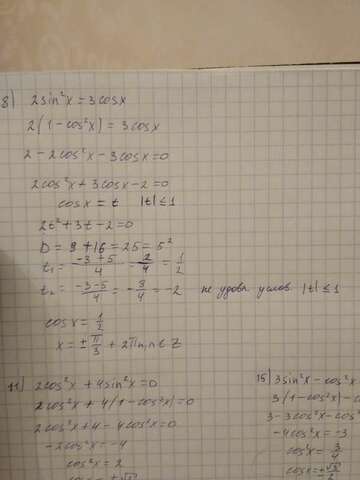 8) 2sin²x = 3cosx
2(1-cos²x) = 3cosx
2-2cos²x-3cosx=0
2cos²x+3cosx-2=0
cosx = t |t|≤1
2t²+3t-2=0
D = 9+16=25=5²
t₁ = (-3+5)/4 = 2/4 = 1/2
t₂ = (-3-5)/4 = -8/4 = -2 не удовл. услов |t|≤1
cosx = 1/2
x = ± π/3 + 2πn, n∈Z
11) 2cos²x + 4sin²x=0
2cos²x + 4(1-cos²x)=0
2cos²x+4-4cos²x=0
-2cos²x=-4
cos²x=2
15) 3sin²x-cos²x
3(1-cos²x)-co
3-3cos²x-cos²
-4cos²x=-3
cos²x = 3/4
cosx=±√3/2